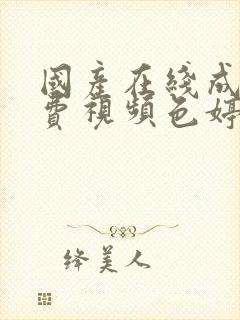 國產在綫成
費視頻色婷
绛美人